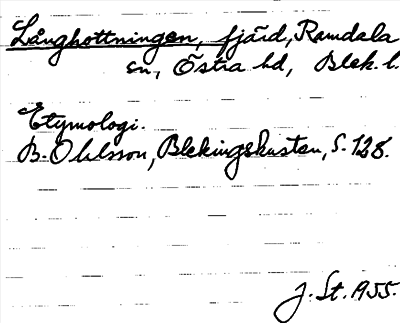 Långhottningen, fjärd, Ramdala
sn, Östra hd, Blek. l.
Etymologi.
B. Ohlsson, Blekingekusten, S. 128.
J. St. 1955.